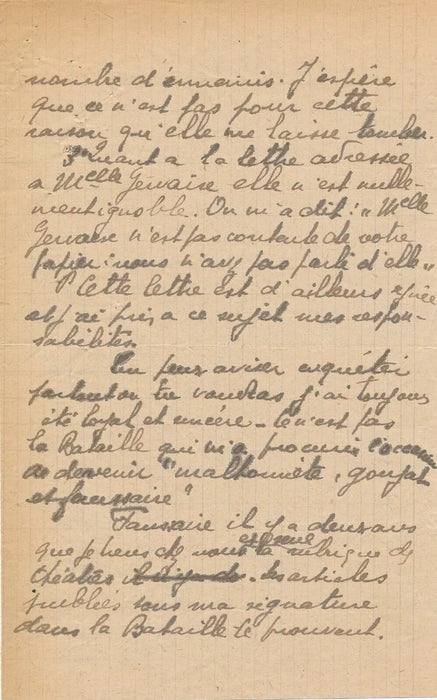 nombre d'ennemis. J'espère
que ce n'est pas pour cette
raison qu'elle me laisse tomber.
3° Quant a la lettre adressée
a Mcelle Gervaise elle n'est nulle-
ment ignoble. On m'a dit : "Mcelle
Gervaise n'est pas contente de votre
papier : nous n'avez pas parlé d'elle"
Cette lettre est d'ailleurs signée
et j'ai pris a ce sujet mes respon-
sabilités.
Tu peux aviser enquêter
partout ou tu voudras j'ai toujours
été loyal et sincère - Ce n'est pas
la Bataille qui m'a procuré l'occasion
de devenir "malhonnête, goujat
et faussaire"
Faussaire il y a deux ans
que je tiens chez vous la rubrique de
théâtre les articles
publiés sous ma signature
dans la Bataille le prouvent.